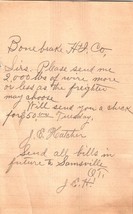 Bonebrake Hd. Co
Sirs. Please send me
2,000 lbs of wire more
or less as the freighter
may choose.
Will send you a check
for 50.00 Tuesday.
J. E. Hatcher
Send all bills in
future to Lamsville
O.T.
J. E. H.